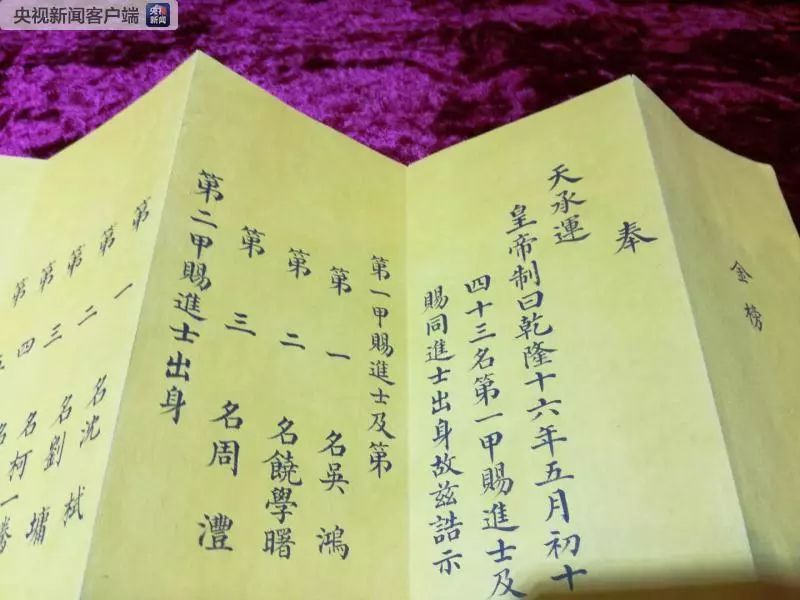 央视新闻客户端
央视
新闻
金榜
奉
天承運
皇帝制曰乾隆十六年五月初十
四十三名第一甲賜進士及
賜同進士出身故兹誥示
第一甲賜進士及第
第一名吳鴻
第二名饒學曙
第三名周澧
第二甲賜進士出身
第一名沈栻
第二名劉墉
第三名柯一騰
第四
第